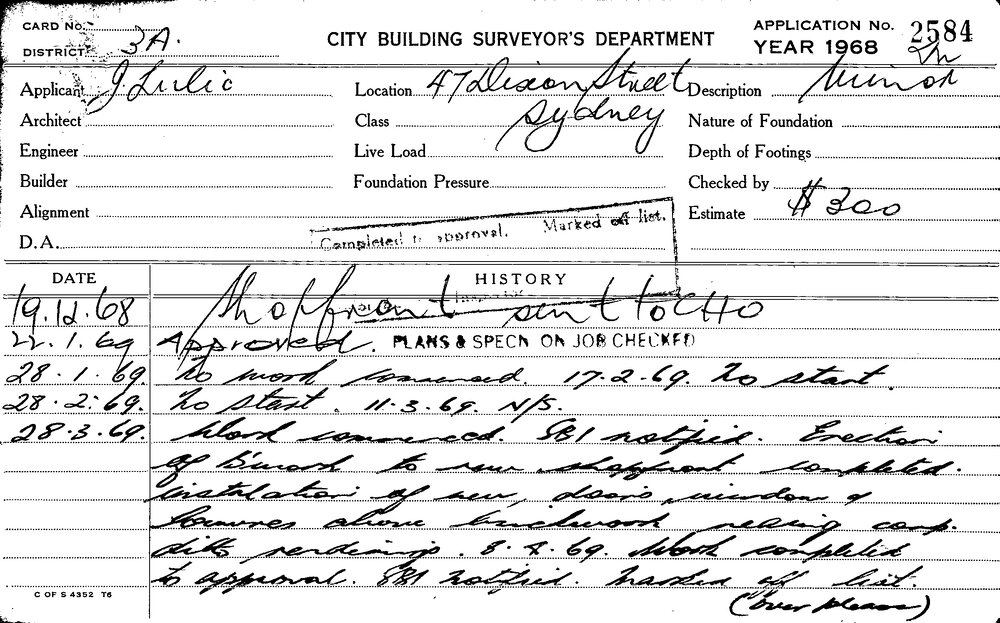 CARD No.
DISTRICT 3A.
CITY BUILDING SURVEYOR'S DEPARTMENT
APPLICATION No. 2584
YEAR 1968
Applicant J. Lulic
Location 47 Dixon Street
Sydney
Description Minor
Architect
Class
Nature of Foundation
Engineer
Live Load
Depth of Footings
Builder
Foundation Pressure
Checked by
Alignment
Estimate $300
D.A.
Completed to approval. Marked off list.
DATE HISTORY
19.12.68 Shopfront sent to CHO
22.1.69 Approved. PLANS & SPECN ON JOB CHECKED
28.1.69. No work commenced. 17.2.69. No start.
28.2.69. No start. 11.3.69. N/S.
28.3.69. Work commenced. SBI notified. Erection
of B'work to new shopfront completed.
Installation of new doors, window &
louvres above brickwork nearing comp.
ditto renderings. 8.4.69. Work completed
to approval. SBI notified. Marked off list.
(Over please)
C OF S 4352 T6